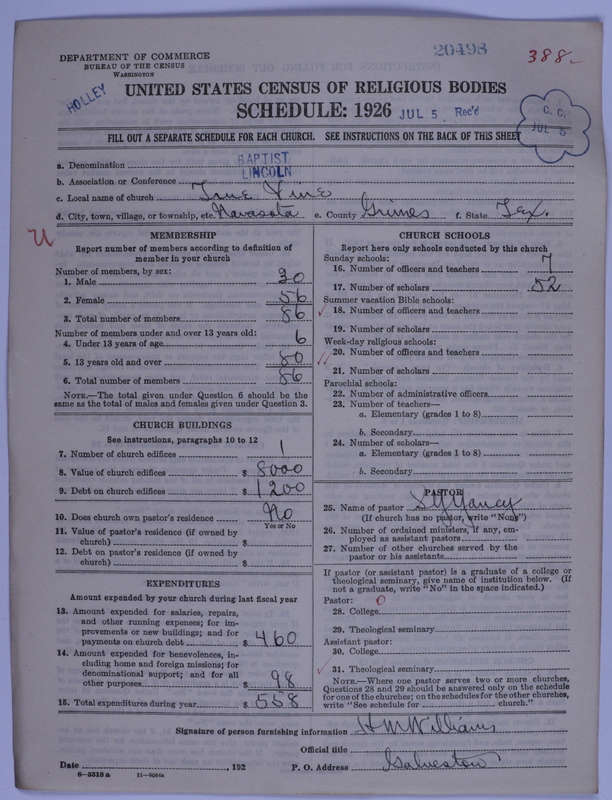 20493
388-
DEPARTMENT OF COMMERCE
BUREAU OF THE CENSUS
WASHINGTON
HOLLEY
UNITED STATES CENSUS OF RELIGIOUS BODIES
SCHEDULE: 1926
JUL 5 Rec'd
C. C.
JUL 5
FILL OUT A SEPARATE SCHEDULE FOR EACH CHURCH. SEE INSTRUCTIONS ON THE BACK OF THIS SHEET
a. Denomination BAPTIST
b. Association or Conference LINCOLN
c. Local name of church True Vine
d. City, town, village, or township, etc. Navasota e. County Grimes f. State Tex.
U
MEMBERSHIP
Report number of members according to definition of
member in your church
Number of members, by sex:
1. Male 30
2. Female 56
3. Total number of members 86
Number of members under and over 13 years old:
4. Under 13 years of age 6
5. 13 years old and over 80
6. Total number of members 86
NOTE.—The total given under Question 6 should be the
same as the total of males and females given under Question 3.
CHURCH BUILDINGS
See instructions, paragraphs 10 to 12
7. Number of church edifices 1
8. Value of church edifices $ 8000
9. Debt on church edifices $ 1200
10. Does church own pastor's residence No
Yes or No
11. Value of pastor's residence (if owned by
church) $
12. Debt on pastor's residence (if owned by
church) $
EXPENDITURES
Amount expended by your church during last fiscal year
13. Amount expended for salaries, repairs,
and other running expenses; for im-
provements or new buildings; and for
payments on church debt $ 460
14. Amount expended for benevolences, in-
cluding home and foreign missions; for
denominational support; and for all
other purposes $ 98
15. Total expenditures during year $ 558
CHURCH SCHOOLS
Report here only schools conducted by this church
Sunday schools:
16. Number of officers and teachers 7
17. Number of scholars 52
Summer vacation Bible schools:
18. Number of officers and teachers
19. Number of scholars
Week-day religious schools:
20. Number of officers and teachers
21. Number of scholars
Parochial schools:
22. Number of administrative officers
23. Number of teachers—
a. Elementary (grades 1 to 8)
b. Secondary
24. Number of scholars—
a. Elementary (grades 1 to 8)
b. Secondary
PASTOR
25. Name of pastor
(If church has no pastor, write "None")
26. Number of ordained ministers, if any, em-
ployed as assistant pastors
27. Number of other churches served by the
pastor or his assistants
If pastor (or assistant pastor) is a graduate of a college or
theological seminary, give name of institution below. (If
not a graduate, write "No" in the space indicated.)
Pastor: 0
28. College
29. Theological seminary
Assistant pastor:
30. College
31. Theological seminary
NOTE.—Where one pastor serves two or more churches,
Questions 28 and 29 should be answered only on the schedule
for one of the churches; on the schedules for the other churches,
write "See schedule for church."
Signature of person furnishing information H M Williams
Official title
Date , 192 P. O. Address Galveston
8—5518 a 11—9034a